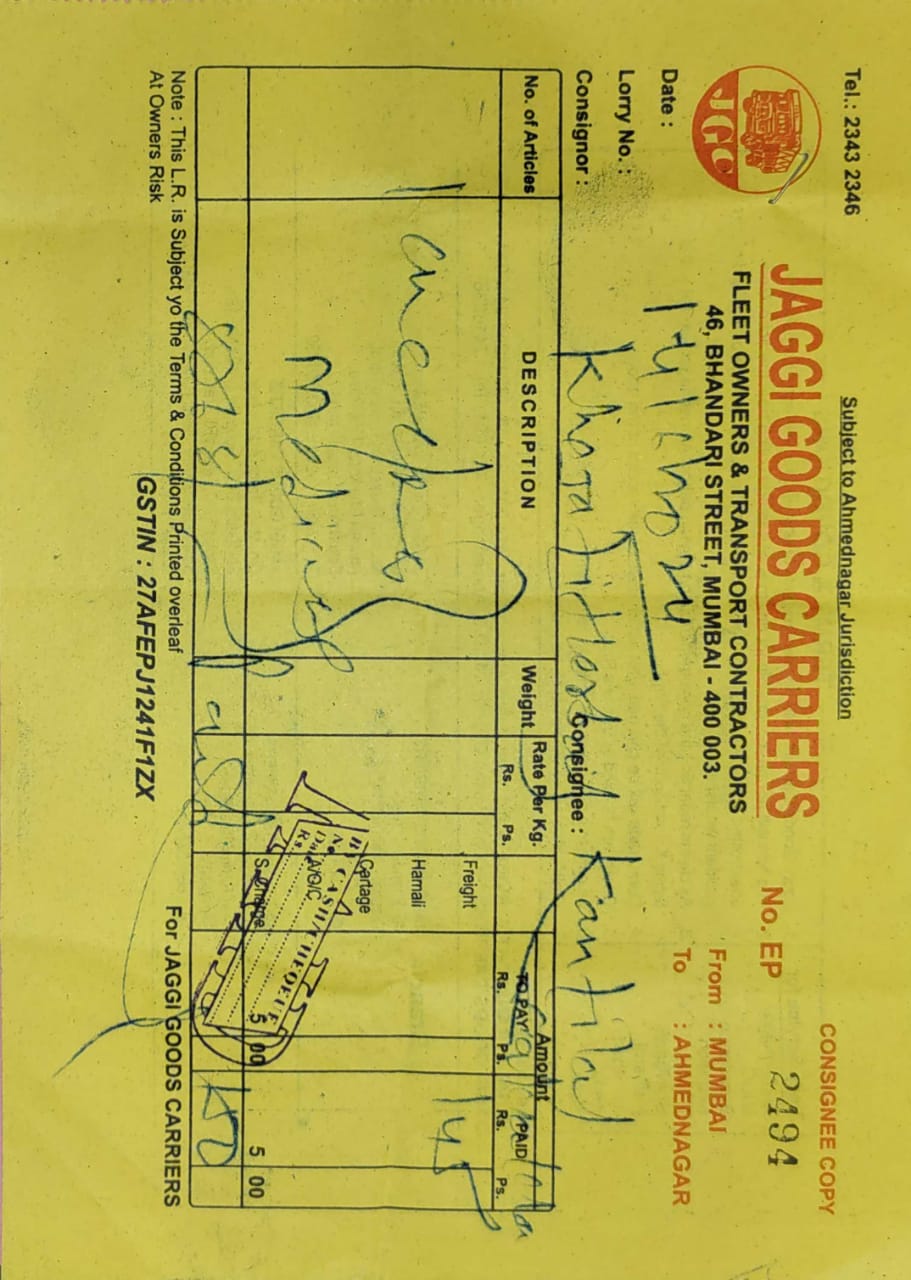 Subject to Ahmednagar Jurisdiction
Tel.: 2343 2346
CONSIGNEE COPY
JGC
JAGGI GOODS CARRIERS
No. EP 2494
FLEET OWNERS & TRANSPORT CONTRACTORS
46, BHANDARI STREET, MUMBAI - 400 003.
From : MUMBAI
To : AHMEDNAGAR
Date :
Lorry No. :
Consignor : Consignee : Kantilal
No. of Articles DESCRIPTION Weight Rate Per Kg. Amount
Rs. Ps. TO PAY PAID
Rs. Ps. Rs. Ps.
1 Freight 145
Hamali
Cartage
Medicine A/O/C
S. Charge 5 00 5 00
BY CASH/CHEQUE
No.
Rs.
150
Note : This L.R. is Subject yo the Terms & Conditions Printed overleaf
At Owners Risk
GSTIN : 27AFEPJ1241F1ZX
For JAGGI GOODS CARRIERS